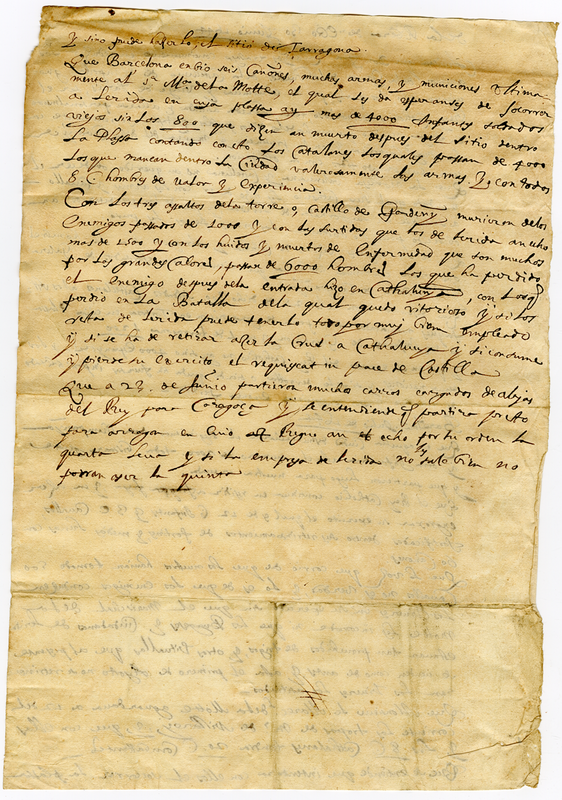 Y sino puede haserlo, el sitio de Tarragona.
Que Barcelona enbio seis Cañones, muchas armas, y municiones Vltima
mente al Sr Ma. de la Motte, el qual les da speranses de socorrer
a Lerida en cuja plassa ay mes de 4000 Infantes soldados
viejos sin los 800 que disen an muerto despues del sitio dentro
la Plassa contando con esto los Catalanes losquales passan de 4000
los que manean dentro la Ciudad valerosamente les armas y con todos
8 hombres de valor y experiencia.
Con los tres assaltos de la torre o, Castillo de Gardeny murieron de los
Enemigos passados de 1000 y con les surtidas que los de lerida an echo
mas de 1500 y con los huidos y muertos de Enfermedad que son muchos
por los grandes Calores, passan de 6000 hombres los que ha perdido
el enemigo despues de la entrada hizo en Cathaluña, con los q
perdio en La Batalla dela qual quedo vitorioso y si los
resta de lerida puede tenerlo todo por muy bien empleado
y si se ha de retirar aser la Crus a Cathaluña y si consume
y pierde su exercito el requiescat in pace de Castilla
Que a 27. de Junio partieron muchos carros cargados de alajas
del Rey para Caragoça y se entendiende q partira presto
para arragon en cuio Reyno an echo por su orden la
quarta leva y si la empresa de lerida no salo bien no
podran aser la quinta